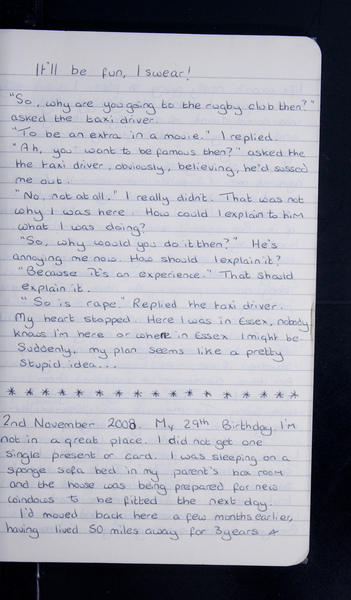 It'll be fun, I swear!
"So, why are you going to the rugby club then?"
asked the taxi driver.
"To be an extra in a movie." I replied.
"Ah, you want to be famous then?" asked the
the taxi driver, obviously, believing, he'd sussed
me out.
"No, not at all." I really didn't. That was not
why I was here. How could I explain to him
what I was doing?
"So, why would you do it then?" He's
annoying me now. How should I explain it?
"Because it's an experience." That should
explain it.
"So is rape." Replied the taxi driver.
My heart stopped. Here I was in Essex, nobody
knows I'm here or where in Essex I might be.
Suddenly, my plan seems like a pretty
stupid idea...
* * * * * * * * * * * * * * * * *
2nd November 2008. My 29th Birthday. I'm
not in a great place. I did not get one
single present or card. I was sleeping on a
sponge sofa bed in my parent's box room
and the house was being prepared for new
windows to be fitted the next day.
I'd moved back here a few months earlier,
having lived 50 miles away for 3 years &